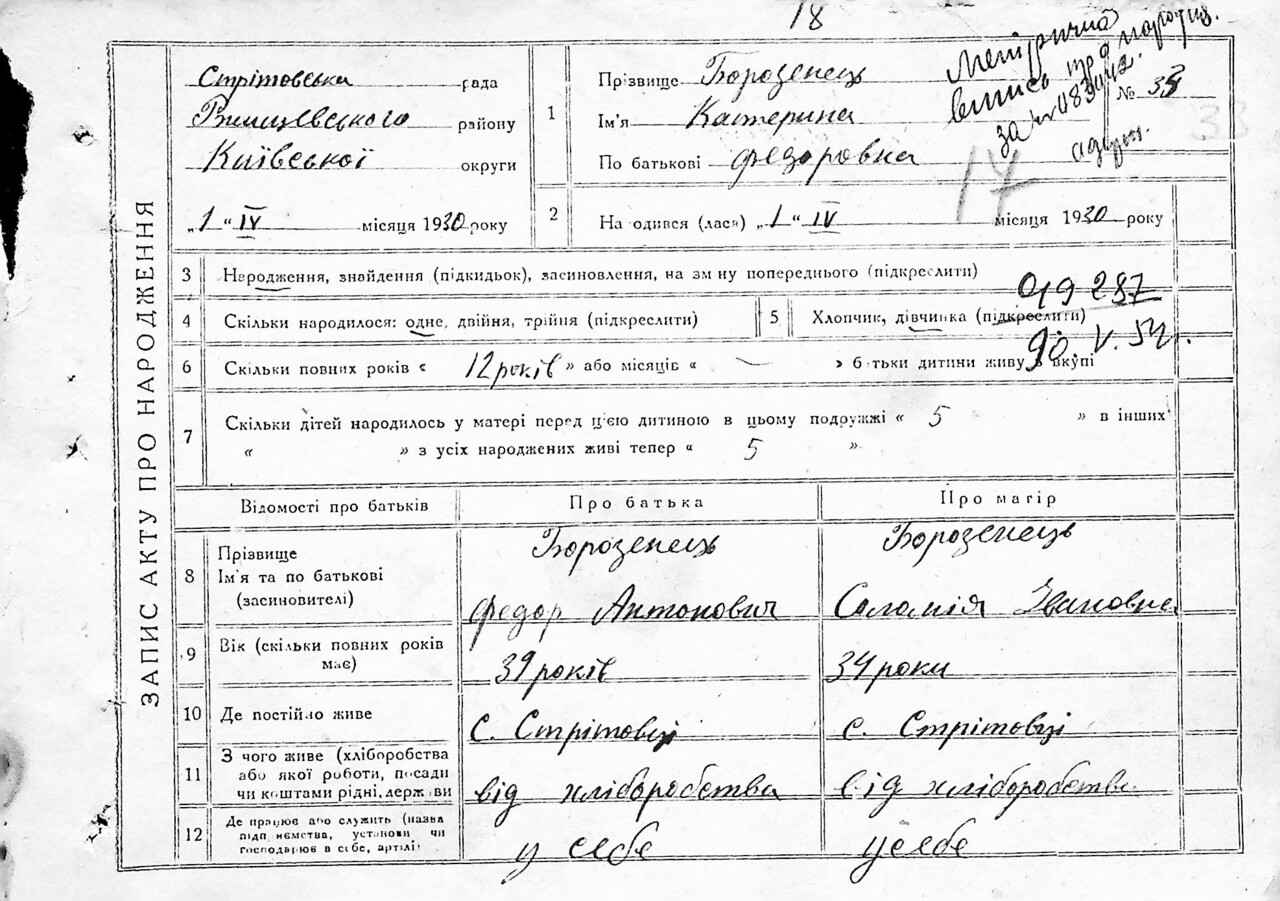 18
ЗАПИС АКТУ ПРО НАРОДЖЕННЯ
Стрітовська рада
Ржищевського району
Київської округи
„1“ IV місяця 1930 року
1
Прізвище Борозенець
Ім'я Катерина
По батькові Федоровна
випись про
за №
№ 33
17
2
На одився (лася) „1“ IV місяця 1930 року
3 Народження, знайдення (підкидьок), засиновлення, на зм ну попереднього (підкреслити)
919287
4 Скільки народилося: одне, двійня, трійня (підкреслити)
5 Хлопчик, дівчинка (підкреслити)
V. 54.
6 Скільки повних років « 12 років » або місяців « — » батьки дитини живу в вкупі
7 Скільки дітей народилось у матері перед цією дитиною в цьому подружжі « 5 » в інших
« » з усіх народжених живі тепер « 5 »
Відомості про батьків Про батька Про матір
8 Прізвище Борозенець Борозенець
Ім'я та по батькові
(засиновителі) Федор Антонович Саломія Івановна
9 Вік (скільки повних років має) 39 років 34 роки
10 Де постійно живе с. Стрітовці с. Стрітовці
11 З чого живе (хліборобства
або якої роботи, посади
чи коштами рідні, держ ви від хліборобства від хліборобства
12 Де працює або служить (назва
підп иємства, установи чи
господарює в себе, артілі у себе у себе